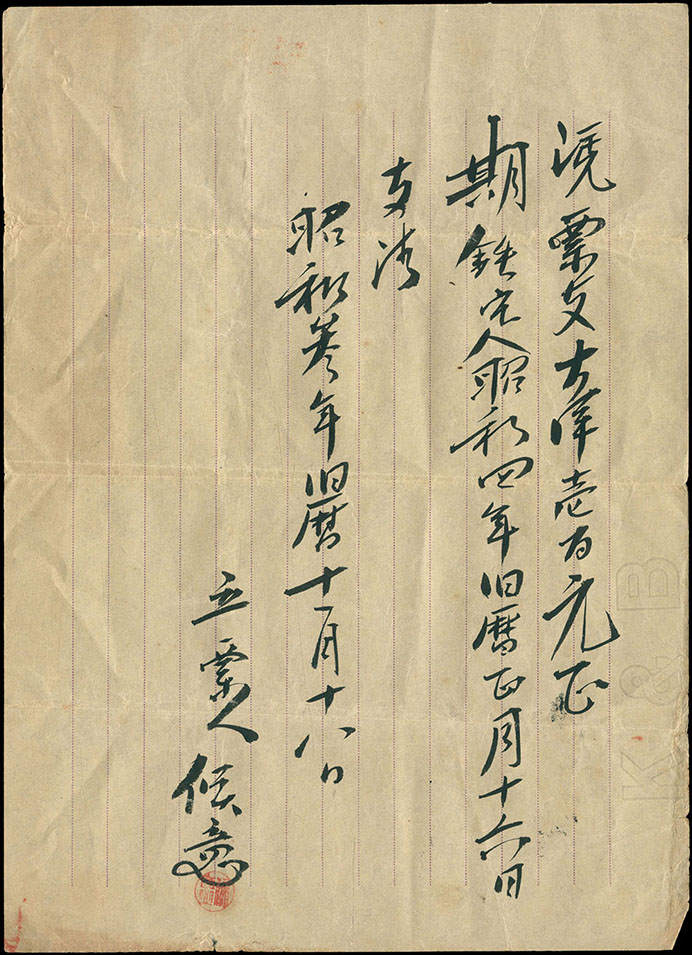 憑票支大洋壱百元正
期 人昭和四年旧暦正月十六日
支清
昭和参年旧暦十一月十八日
立票人 侯意
K&B